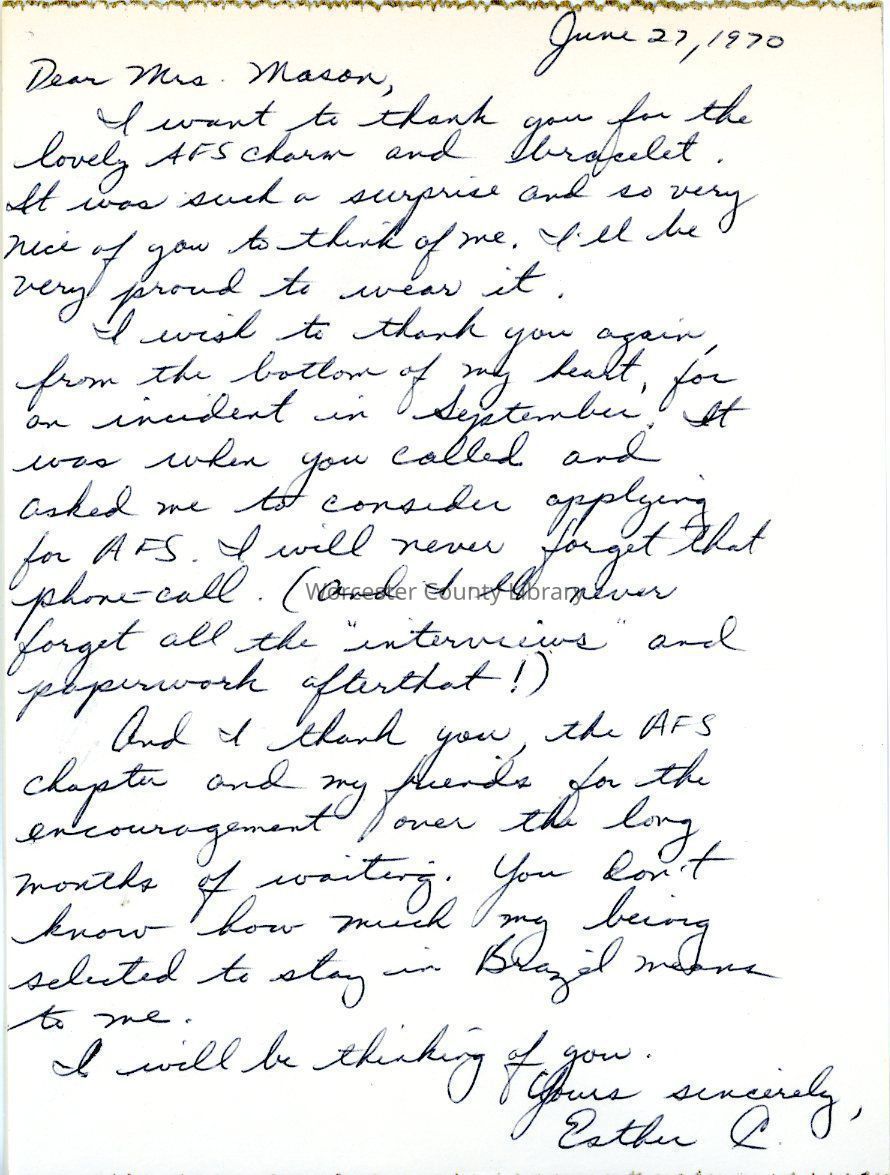 June 27, 1970
Dear Mrs. Mason,
I want to thank you for the
lovely AFS charm and bracelet.
It was such a surprise and so very
nice of you to think of me. I'll be
very proud to wear it.
I wish to thank you again,
from the bottom of my heart, for
an incident in September. It
was when you called and
asked me to consider applying
for AFS. I will never forget that
phone-call. (And I'll never
Worcester County Library
forget all the "interviews" and
paperwork afterthat!)
And I thank you, the AFS
chapter and my friends for the
encouragement over the long
months of waiting. You don't
know how much my being
selected to stay in Brazil means
to me.
I will be thinking of you.
Yours sincerely,
Esther C.